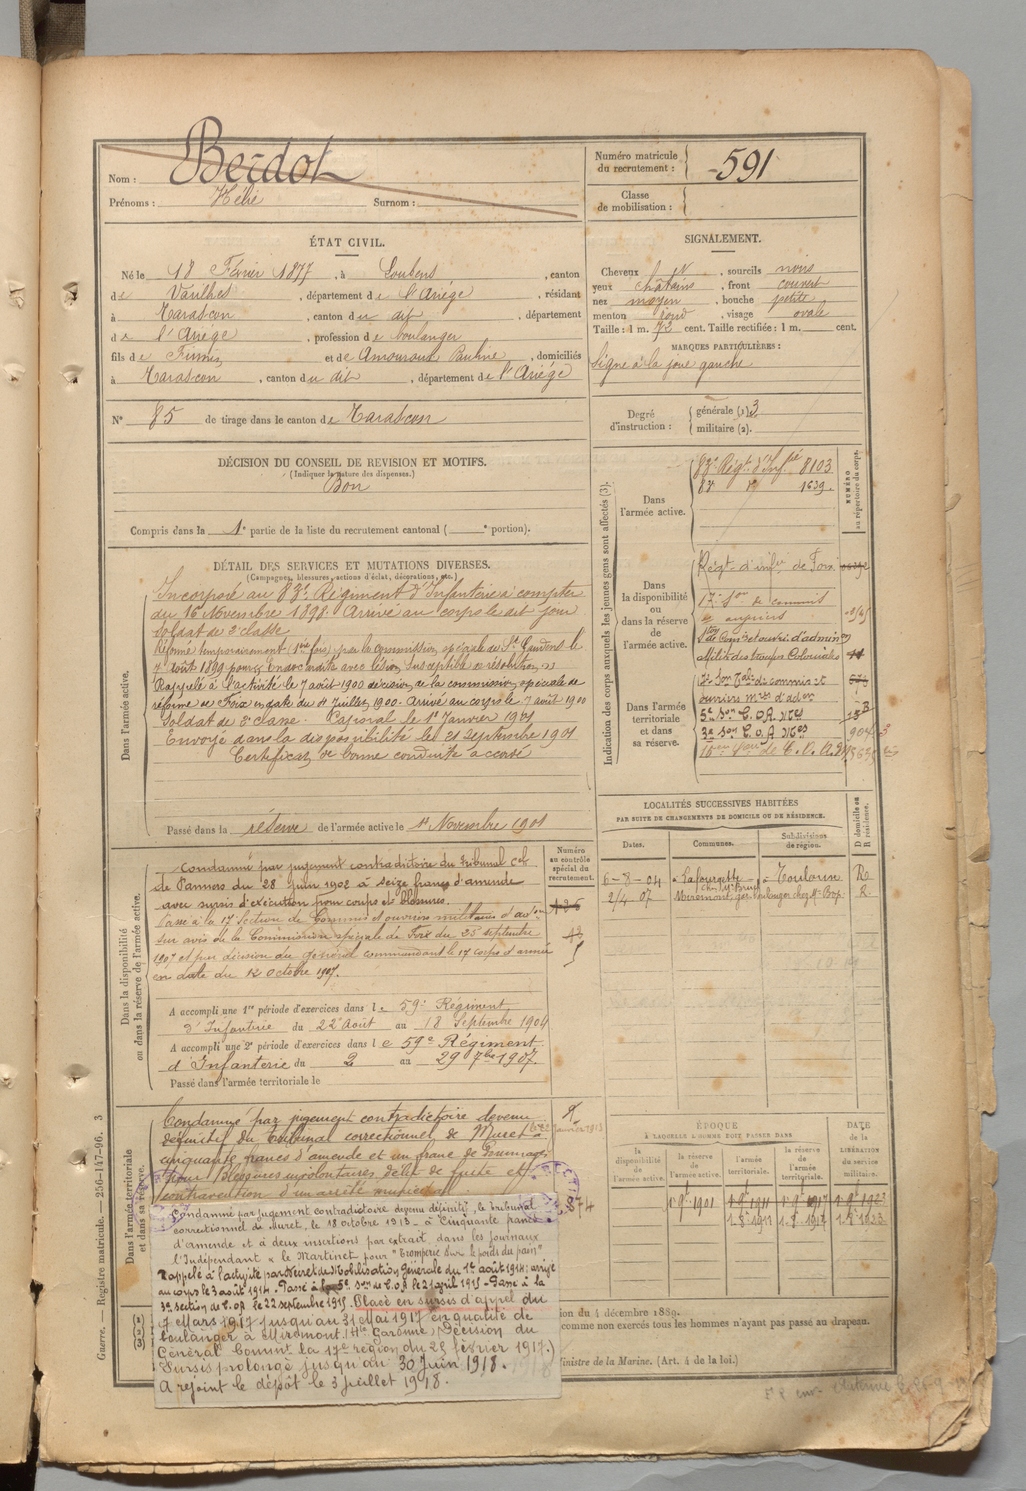 Nom : Berdot
Prénoms : Hélie Surnom :
Numéro matricule du recrutement : 591
Classe de mobilisation :
ÉTAT CIVIL.
Né le 18 Février 1877, à Loubens, canton
de Varilhes, département de l'Ariège, résidant
à Tarascon, canton du dit, département
de l'Ariège, profession de boulanger
fils de Firmin et de Amouroux Pauline, domiciliés
à Tarascon, canton du dit, département de l'Ariège
N° 85 de tirage dans le canton de Tarascon
SIGNALEMENT.
Cheveux N, sourcils noirs
yeux châtains, front couvert
nez moyen, bouche petite
menton rond, visage ovale
Taille : 1 m. 72 cent. Taille rectifiée : 1 m. cent.
MARQUES PARTICULIÈRES :
Signe à la joue gauche
Degré d'instruction : générale (1) 3
militaire (2).
DÉCISION DU CONSEIL DE REVISION ET MOTIFS.
(Indiquer la nature des dispenses.)
Bon
Compris dans la 1e partie de la liste du recrutement cantonal ( e portion).
Indication des corps auxquels les jeunes gens sont affectés (3).
NUMÉRO au répertoire du corps.
Dans l'armée active.
83e Régt d'Infie 8103
83e de 1639.
Dans la disponibilité ou dans la réserve de l'armée active.
Régt d'infie de Foix
17e Son de commis
et ouvriers
Affecté des troupes Coloniales
Dans l'armée territoriale et dans sa réserve.
ouvriers mres d'adon
5e Son C.O.A.
3e Son C.O.A. 904
DÉTAIL DES SERVICES ET MUTATIONS DIVERSES.
(Campagnes, blessures, actions d'éclat, décorations, etc.)
Dans l'armée active.
Incorporé au 83e Régiment d'Infanterie à compter
du 16 Novembre 1898. Arrivé au corps le dit jour
soldat de 2e classe
Réformé temporairement (1ère fois) par la commission spéciale de St Gaudens le
7 août 1899 pour endocardite avec lésion, susceptible de résolution
Rappelé à l'activité le 7 août 1900 décision de la commission spéciale de
réforme de Foix en date du Juillet 1900. Arrivé au corps le 7 août 1900
Soldat de 2e classe. Caporal le 1er Janvier 1901
Envoyé dans la disponibilité le 21 Septembre 1901
Certificat de bonne conduite accordé
Passé dans la réserve de l'armée active le 1er Novembre 1901
LOCALITÉS SUCCESSIVES HABITÉES
PAR SUITE DE CHANGEMENTS DE DOMICILE OU DE RÉSIDENCE.
Dates. Communes. Subdivisions de région. D domicile ou R résidence.
6-8-04 Lafourguette Toulouse R
2/4 07 Miremont R.
Numéro au contrôle spécial du recrutement.
Dans la disponibilité ou dans la réserve de l'armée active.
Condamné par jugement contradictoire du Tribunal cel
de Pamiers du 28 Juin 1902 à seize francs d'amende
avec sursis d'exécution pour coups et blessures.
Passé à la 17e Section de Commis et ouvriers militaires d'adon
sur avis de la Commission spéciale de Foix du 25 septembre
1907 et par décision du général commandant le 17e corps d'armée
en date du 12 octobre 1907.
A accompli une 1re période d'exercices dans le 59e Régiment
d'Infanterie du 22 Août au 18 Septembre 1904
A accompli une 2e période d'exercices dans le 59e Régiment
d'Infanterie du 2 au 29 7bre 1907.
Passé dans l'armée territoriale le
Dans l'armée territoriale et dans sa réserve.
Condamné par jugement contradictoire devenu
définitif du Tribunal correctionnel de Muret à
cinquante francs d'amende et un franc de dommages
pour blessures involontaires délit de fuite et
contravention d'un arrêté municipal
Condamné par jugement contradictoire devenu définitif, le Tribunal
correctionnel de Muret, le 18 octobre 1913 - à Cinquante francs
d'amende et à deux insertions par extrait dans les journaux
l'Indépendant et le Martinet pour "Tromperie sur le poids du pain"
Rappelé à l'activité par Décret de Mobilisation Générale du 1er août 1914; arrivé
au corps le 3 août 1914. Passé à la 5e Son de C.O.A le 21 avril 1915 - Passé à la
3e section de C.O.A. le 22 septembre 1915. Placé en sursis d'appel du
7 Mars 1917 jusqu'au 31 Mai 1917 en qualité de
boulanger à Miremont (Hte Garonne) (Décision du
Général Commt la 17e région du 25 février 1917.)
Sursis prolongé jusqu'au 30 Juin 1918.
A rejoint le dépôt le 3 Juillet 1918.
ÉPOQUE
À LAQUELLE L'HOMME DOIT PASSER DANS
la disponibilité de l'armée active. la réserve de l'armée active. l'armée territoriale. la réserve de l'armée territoriale.
DATE de la LIBÉRATION du service militaire.
1er 9bre 1901
ion du 4 décembre 1889.
comme non exercés tous les hommes n'ayant pas passé au drapeau.
inistre de la Marine. (Art. 4 de la loi.)
Guerre. — Registre matricule. — 256-147-96. 3